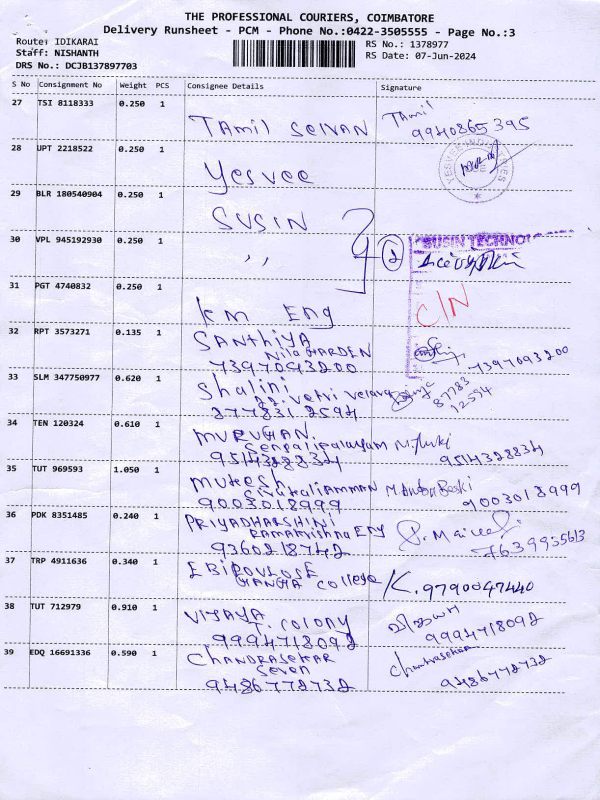 THE PROFESSIONAL COURIERS, COIMBATORE
Delivery Runsheet - PCM - Phone No.:0422-3505555 - Page No.:3
Route: IDIKARAI
RS No.: 1378977
Staff: NISHANTH
RS Date: 07-Jun-2024
DRS No.: DCJB137897703
S No Consignment No Weight PCS Consignee Details Signature
27 TSI 8118333 0.250 1
Tamil Selvan
Tamil
9940865395
28 UPT 2218522 0.250 1
Yesvee
29 BLR 180540904 0.250 1
SUSIN
30 VPL 945192930 0.250 1
,,
2
SUSIN TECHNO
31 PGT 4740832 0.250 1
KM Eng
C/N
32 RPT 3573271 0.135 1
SANThiYA
Nila GARDEN
7397093200
7397093200
33 SLM 347750977 0.620 1
Shalini
22. Vetri
877831 2594
87783
12594
34 TEN 120324 0.610 1
MURUGAN.
9514328834
9514328834
35 TUT 969593 1.050 1
Mukesh
9003018999
9003018999
36 PDK 8351485 0.240 1
PRIYADHARSHINI
Ramakrishna Eng
9360218742
7639935613
37 TRP 4911636 0.340 1
EBIPOULOSE
GANGA College
K. 9790047440
38 TUT 712979 0.910 1
VIJAYA
T. COLONY
9994718092
விஜயா
9994718092
39 EDQ 16691336 0.590 1
CHANDRASEKAR
Seven
9486772732
Chandrasekar
9486772732